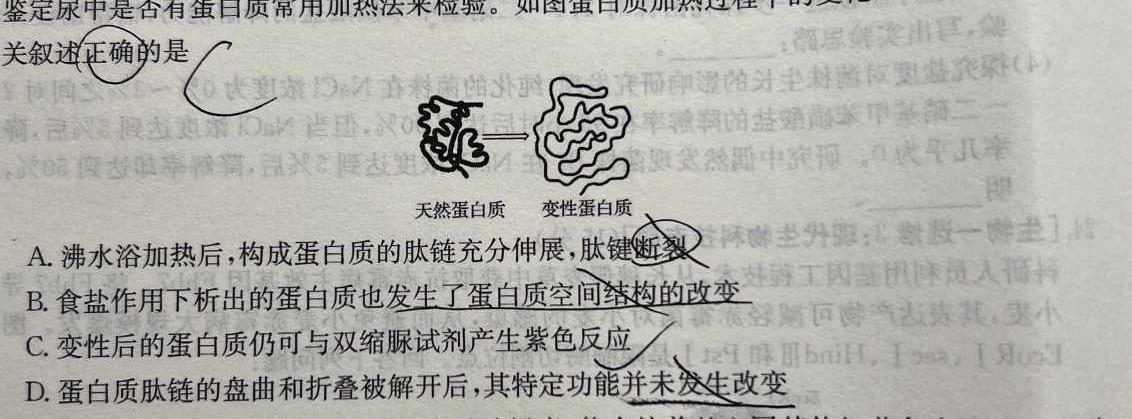 鉴定尿中是否有蛋白质常用加热法来检验。如图蛋白质加热过程中的变化
关叙述正确的是 C
天然蛋白质 变性蛋白质
A. 沸水浴加热后,构成蛋白质的肽链充分伸展,肽键断裂
B. 食盐作用下析出的蛋白质也发生了蛋白质空间结构的改变
C. 变性后的蛋白质仍可与双缩脲试剂产生紫色反应
D. 蛋白质肽链的盘曲和折叠被解开后,其特定功能并未发生改变